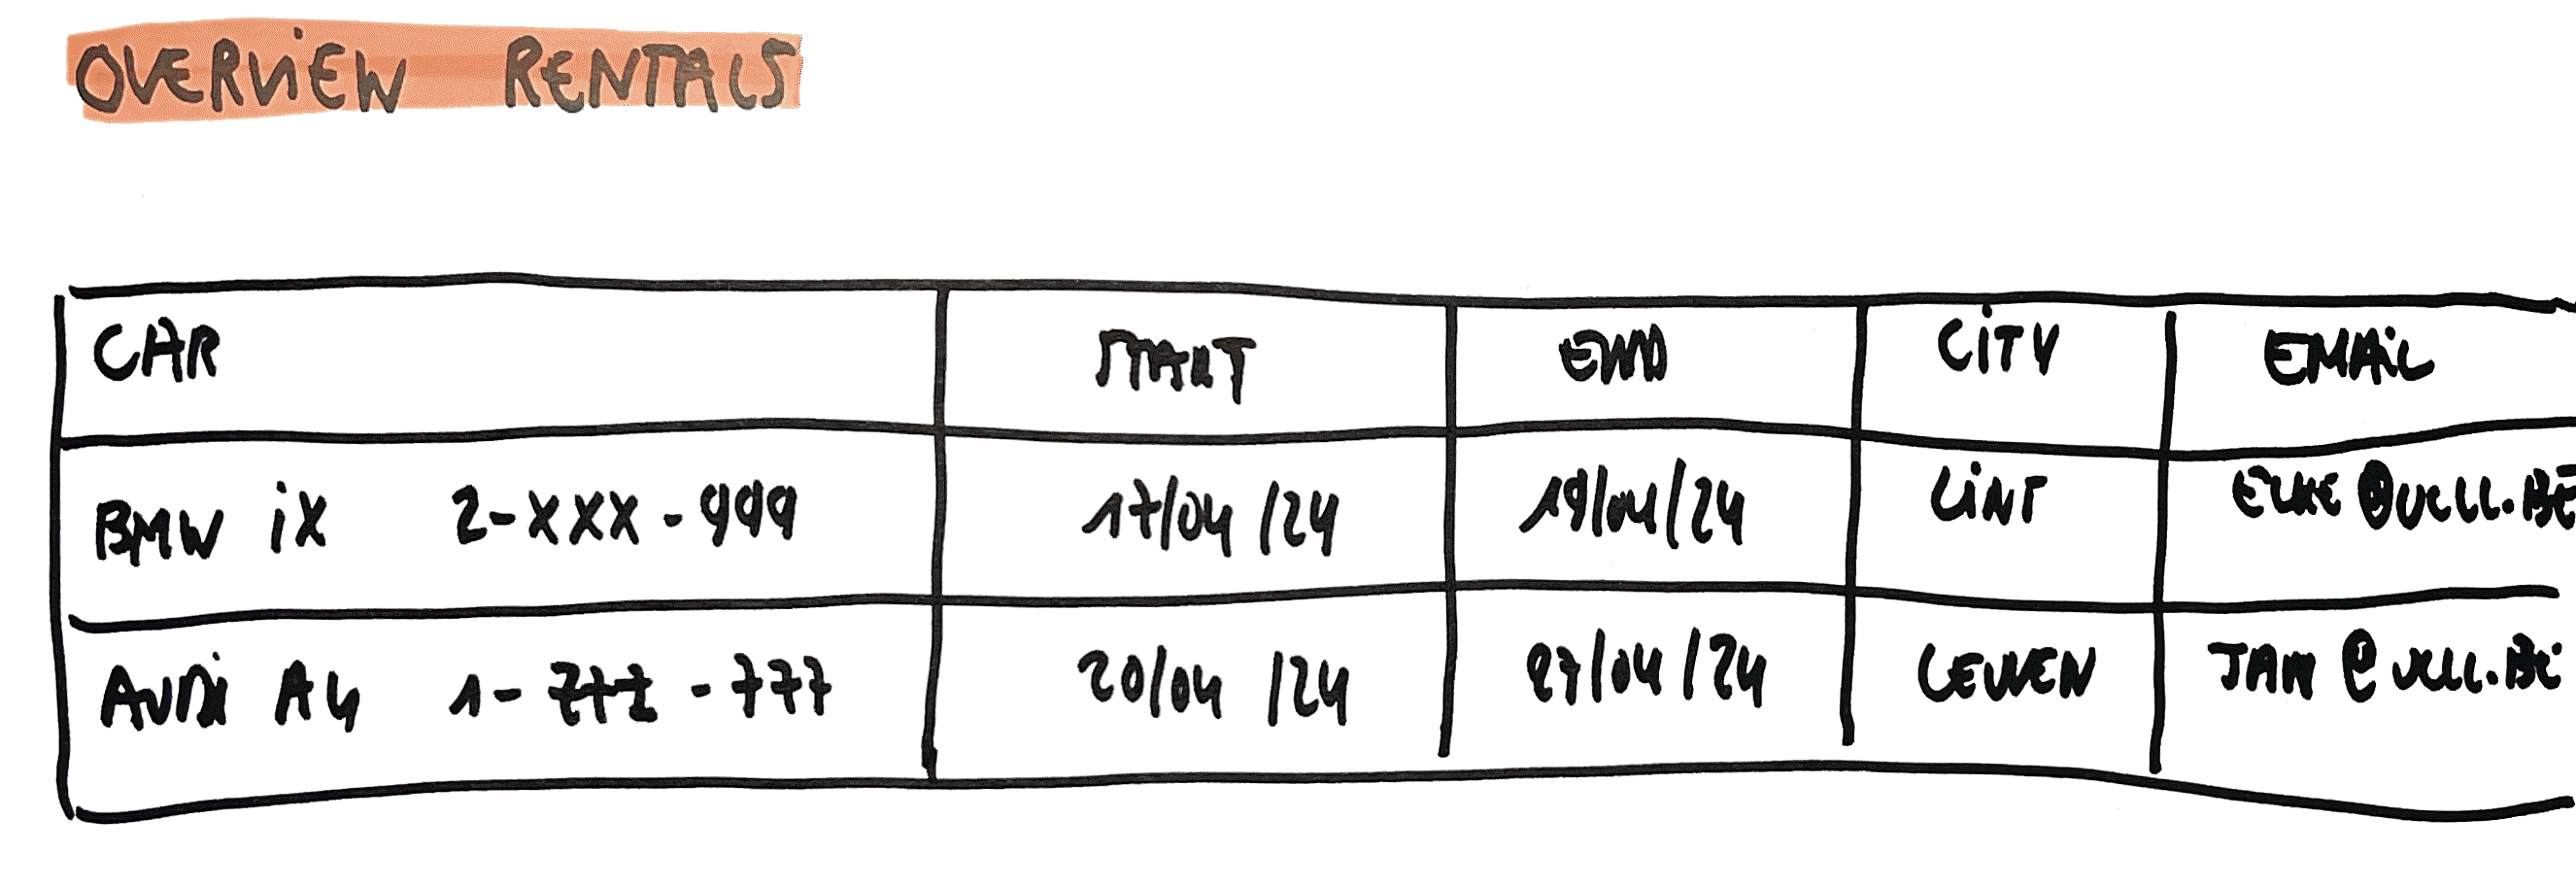 OVERViEW RENTALS
CAR START END CiTY EMAiL
BMW iX 2-XXX-999 17/04/24 19/04/24 LiNT ELKE@UCLL.BE
AUDi A4 1-ZZZ-777 20/04/24 27/04/24 LEUVEN JAN@UCLL.BE